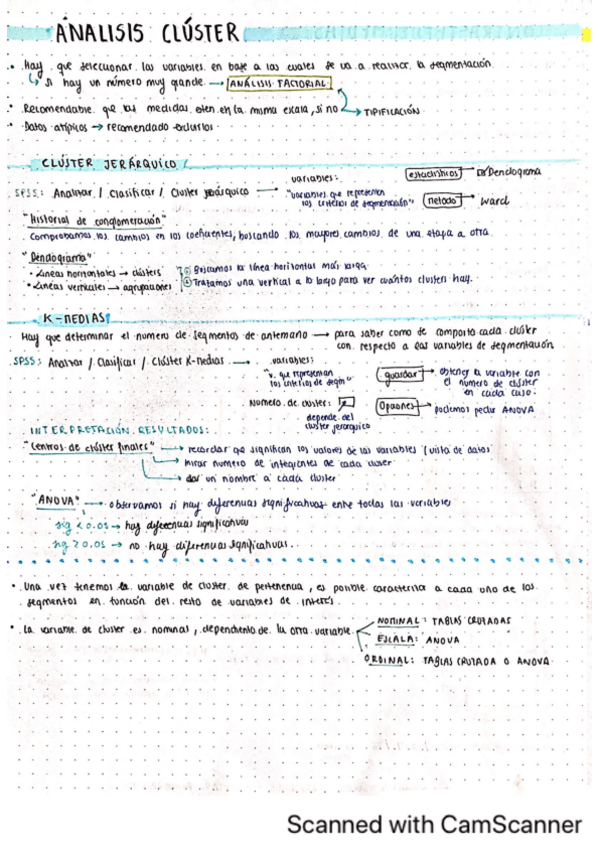 ANALISIS CLÚSTER
• Hay que seleccionar las variables en base a las cuales se va a realizar la segmentación
↳ si hay un número muy grande → ANÁLISIS FACTORIAL
• Recomendable que las medidas esten en la misma escala, si no → TIPIFICACIÓN
• Datos atípicos → recomendado excluirlos
CLÚSTER JERÁRQUICO
SPSS: Analizar / Clasificar / Cluster jerárquico → variables: "variables que representen los criterios de segmentación"
estadísticos → Dendograma
método → Ward
"Historial de conglomeración"
Comprobamos los cambios en los coeficientes, buscando los mayores cambios de una etapa a otra.
"Dendograma"
• Líneas horizontales → clústers
• Líneas verticales → agrupaciones
① Buscamos la línea horizontal más larga.
② Trazamos una vertical a lo largo para ver cuántos clusters hay.
K-MEDIAS
Hay que determinar el numero de segmentos de antemano → para saber como se comporta cada clúster
con respecto a las variables de segmentación
SPSS: Analizar / Clasificar / Clúster K-medias → variables:
"v. que representan
los criterios de segm"
Numero de cluster:
depende del
cluster jerarquico
guardar → obtener la variable con
el numero de clúster
en cada caso.
Opciones → podemos pedir ANOVA
INTERPRETACIÓN RESULTADOS:
"Centros de clúster finales" → recordar que significan los valores de las variables (vista de datos
→ mirar numero de integrantes de cada cluster
→ dar un nombre a cada cluster
"ANOVA" → observamos si hay diferencias significativas entre todas las variables
sig < 0.05 → hay diferencias significativas
sig > 0.05 → no hay diferencias significativas.
• Una vez tenemos la variable de cluster de pertenencia, es posible caracterizar a cada uno de los
segmentos en función del resto de variables de interés
• La variable de cluster es nominal, dependiendo de la otra variable
NOMINAL: TABLAS CRUZADAS
ESCALA: ANOVA
ORDINAL: TABLAS CRUZADA O ANOVA
Scanned with CamScanner